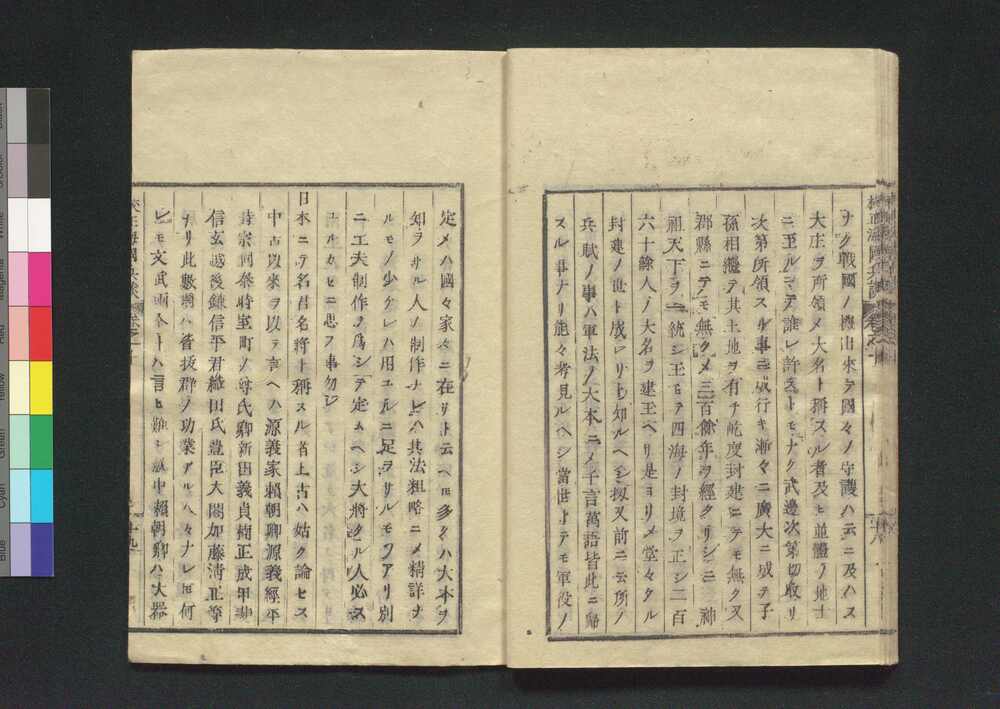 ナク戰國ノ極出來テ國々ノ守護ハ云ニ及ハス
大庄ヲ所領メ大名ト稱スル者及ヒ並體ノ地士
ニ至ルマテ誰レ許ストモナク武邊次第切取リ
次第所領スル事ニ成行キ漸々ニ廣大ニ成テ子
孫相繼テ其土地ヲ有チ乾度封建ニテモ無ク又
郡縣ニテモ無クメ三百餘年ヲ經タリシニ 神
祖天下ヲ一統シ玉ヒテ四海ノ封境ヲ正シ二百
六十餘人ノ大名ヲ建玉ヘリ是ヨリメ堂々タル
封建ノ世ト成レリト知ルヘシ扨又前ニ云所ノ
兵賦ノ事ハ軍法ノ大本ニメ千言萬語皆此ニ歸
スル事ナリ能々考見ルヘシ當世トテモ軍役ノ
定メハ國々家々ニ在リト云ヘ𪜈多クハ大本ヲ
知ヲサル人ノ制作ナレハ其法粗略ニメ精詳ナ
ルモノ少ケレハ用ユルニ足ヲサルモノアリ別
ニ工夫制作ヲ爲シテ定ムヘシ大將タル人必ス
ユルカセニ思フ事勿レ
日本ニテ名君名將ト稱スル者上古ハ姑ク論セス
中古以來ヲ以テ言ヘハ源義家賴朝卿源義經平
時宗同泰時室町ノ尊氏卿新田義貞楠正成甲斐
信玄越後謙信平君織田氏豊臣大閤加藤淸正等
ナリ此數輩ハ皆拔群ノ功業アル人々ナレ𪜈何
レモ文武兩全トハ言ヒ難シ就中賴朝卿ハ大器
校正海國兵談 卷之十
十九